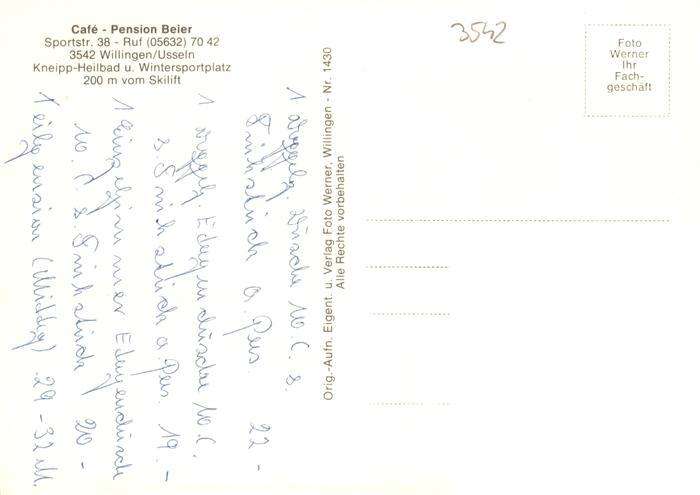 Café - Pension Beier
Sportstr. 38 - Ruf (05632) 70 42
3542 Willingen/Usseln
Kneipp-Heilbad u. Wintersportplatz
200 m vom Skilift
3542
Foto
Werner
Ihr
Fach-
geschäft
Orig.-Aufn. Eigent. u. Verlag Foto Werner, Willingen - Nr. 1430
Alle Rechte vorbehalten
1 Dusche W.C. &
Frühstück a Pers. 22 -
1 W.C.
& Frühstück a Pers. 19.-
1 Einzelzimmer
W.C. & Frühstück 20 -
Teilpension (Mittag) 29-32 M.